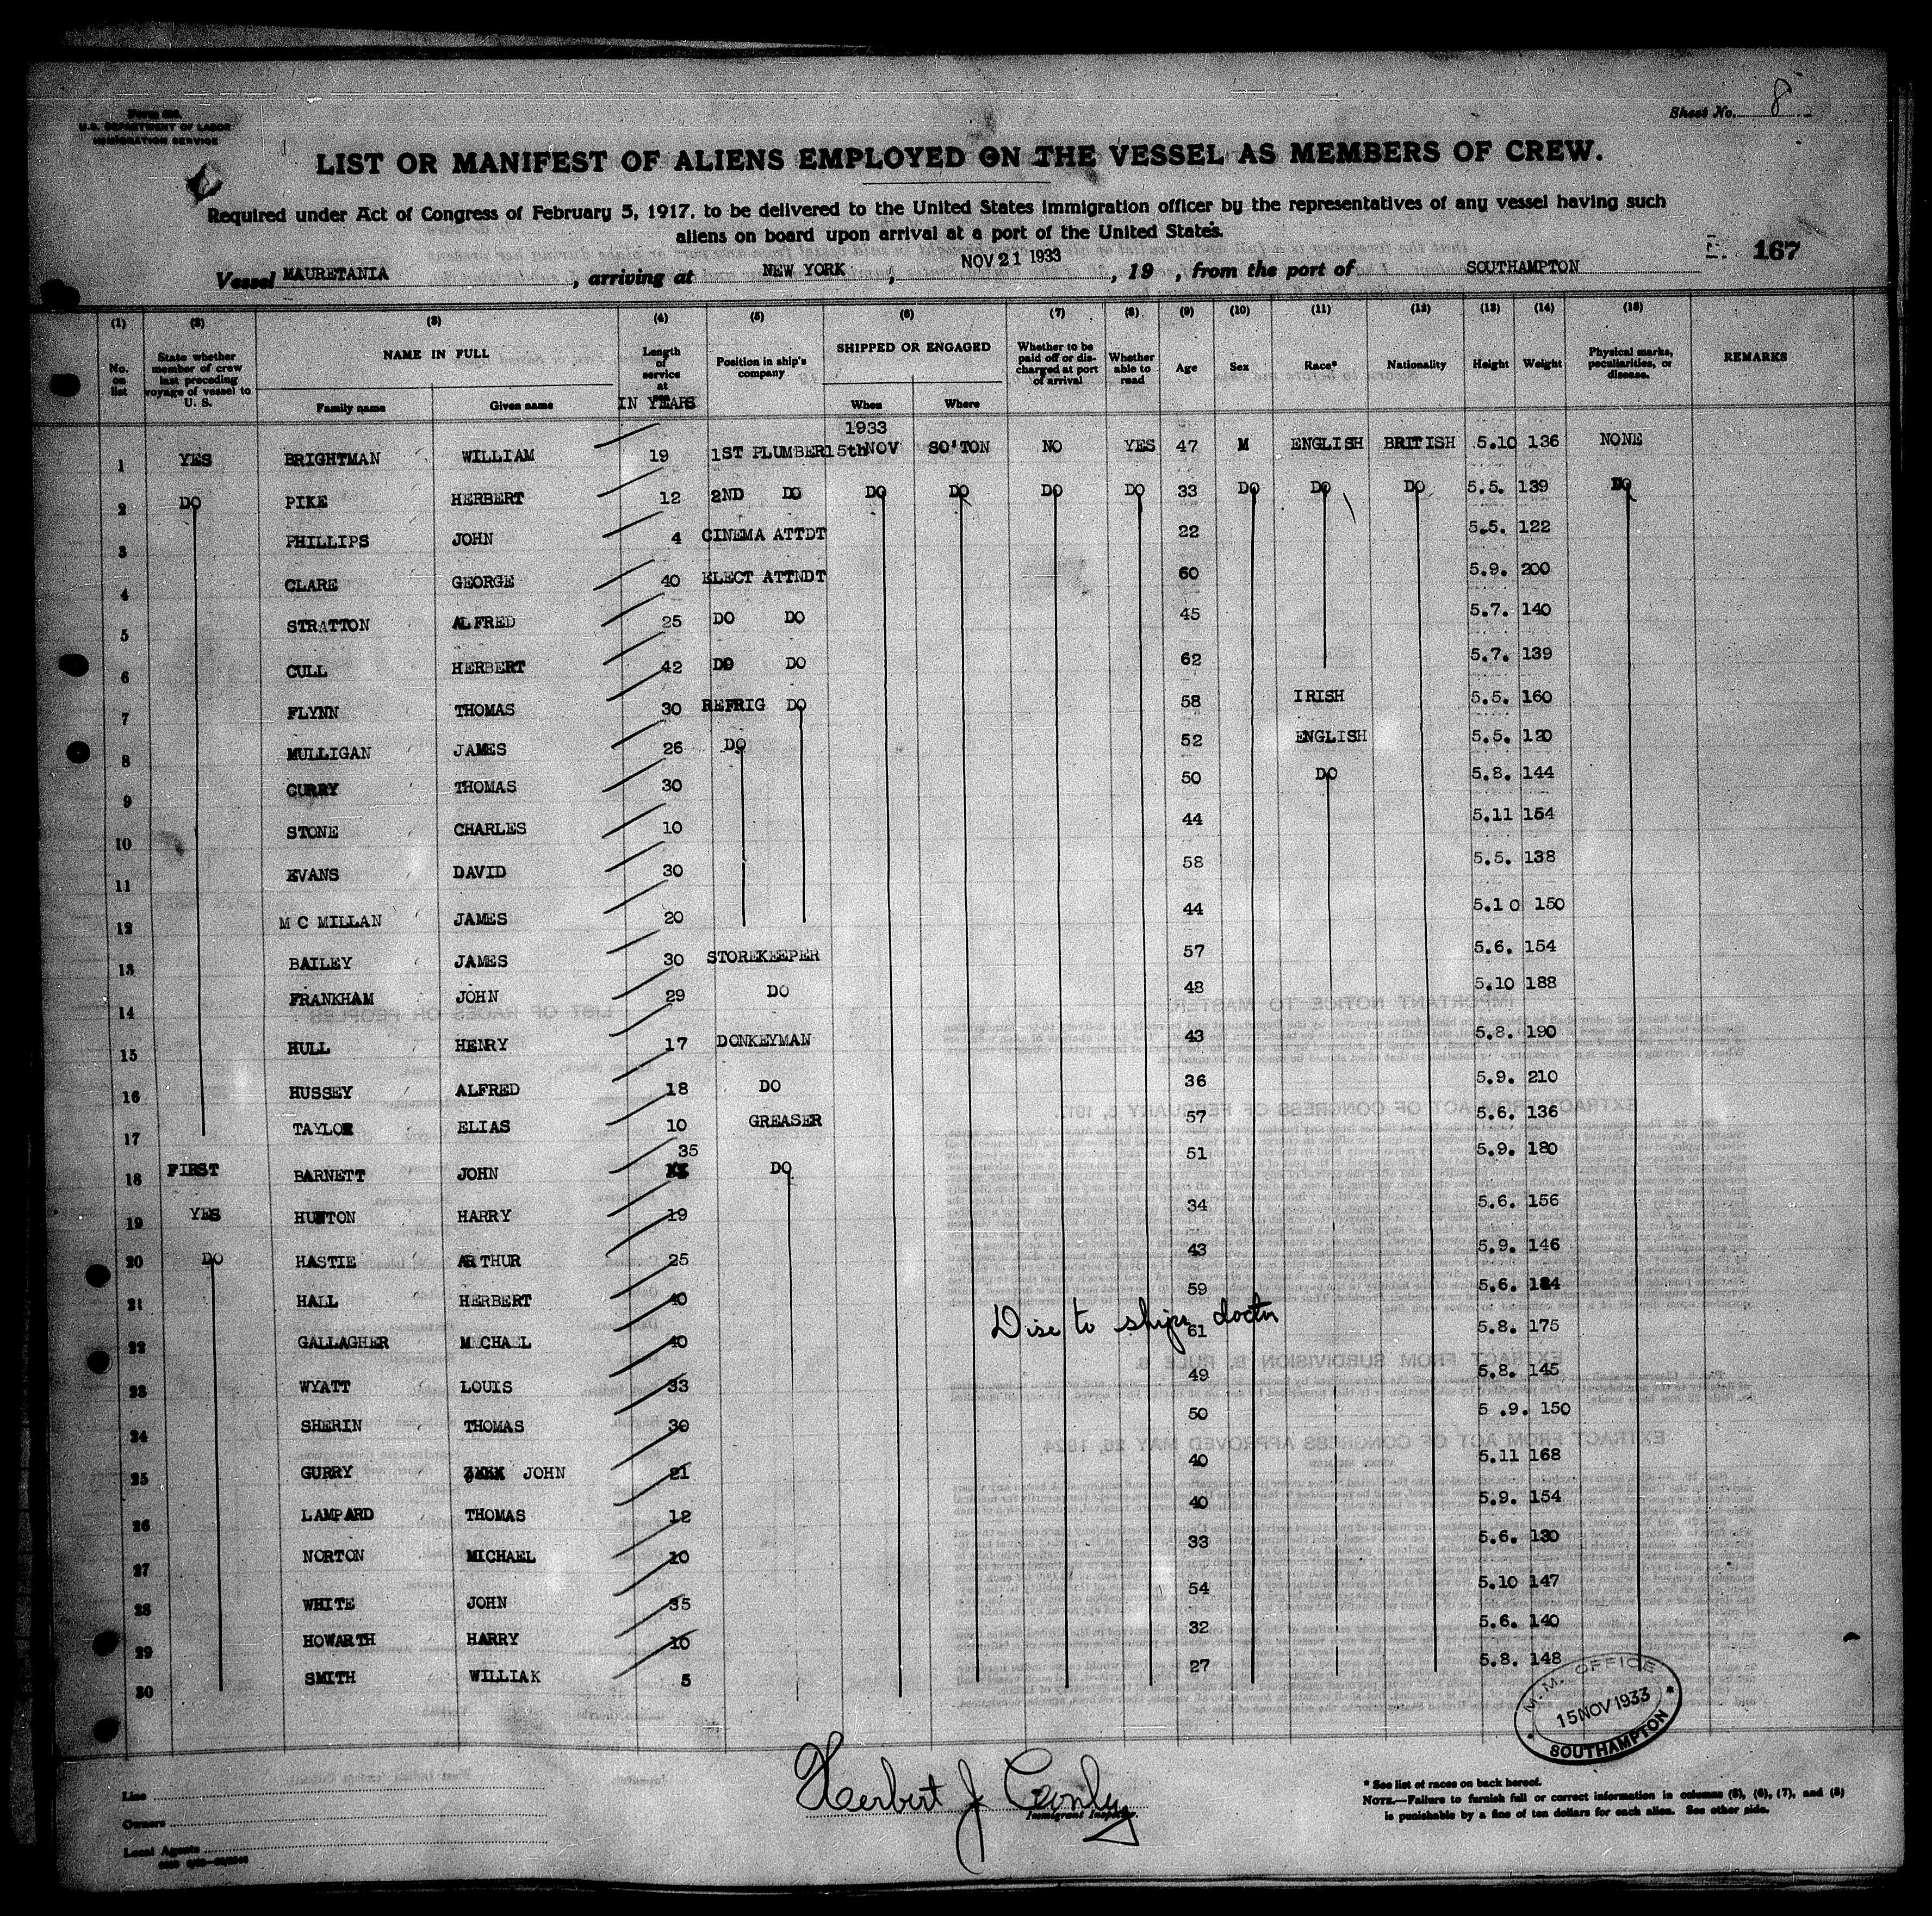 Sheet No. 8
U.S. DEPARTMENT OF LABOR
IMMIGRATION SERVICE
LIST OR MANIFEST OF ALIENS EMPLOYED ON THE VESSEL AS MEMBERS OF CREW.
Required under Act of Congress of February 5, 1917, to be delivered to the United States immigration officer by the representatives of any vessel having such
aliens on board upon arrival at a port of the United States.
167
Vessel MAURETANIA, arriving at NEW YORK, NOV 21 1933, 19 , from the port of SOUTHAMPTON
(1) (2) (3) (4) (5) (6) (7) (8) (9) (10) (11) (12) (13) (14) (15)
No. on list State whether member of crew last preceding voyage of vessel to U. S. NAME IN FULL Family name Given name Length of service at IN YEARS Position in ship's company SHIPPED OR ENGAGED When Where Whether to be paid off or discharged at port of arrival Whether able to read Age Sex Race* Nationality Height Weight Physical marks, peculiarities, or disease. REMARKS
1933
1 YES BRIGHTMAN WILLIAM 19 1ST PLUMBER 15th NOV SO'TON NO YES 47 M ENGLISH BRITISH 5.10 136 NONE
2 DO PIKE HERBERT 12 2ND DO DO DO DO DO 33 DO DO DO 5.5. 139 DO
3 PHILLIPS JOHN 4 CINEMA ATTDT 22 5.5. 122
4 CLARE GEORGE 40 ELECT ATTNDT 60 5.9. 200
5 STRATTON ALFRED 25 DO DO 45 5.7. 140
6 CULL HERBERT 42 DO DO 62 5.7. 139
7 FLYNN THOMAS 30 REFRIG DO 58 IRISH 5.5. 160
8 MULLIGAN JAMES 26 DO 52 ENGLISH 5.5. 120
9 CURRY THOMAS 30 50 DO 5.8. 144
10 STONE CHARLES 10 44 5.11 154
11 EVANS DAVID 30 58 5.5. 138
12 M C MILLAN JAMES 20 44 5.10 150
13 BAILEY JAMES 30 STOREKEEPER 57 5.6. 154
14 FRANKHAM JOHN 29 DO 48 5.10 188
15 HULL HENRY 17 DONKEYMAN 43 5.8. 190
16 HUSSEY ALFRED 18 DO 36 5.9. 210
17 TAYLOR ELIAS 10 GREASER 57 5.6. 136
18 FIRST BARNETT JOHN 35 DO 51 5.9. 180
19 YES HUTTON HARRY 19 34 5.6. 156
20 DO HASTIE ARTHUR 25 43 5.9. 146
21 HALL HERBERT 40 59 5.6. 184
Disc to ships doctor
22 GALLAGHER MICHAEL 40 61 5.8. 175
23 WYATT LOUIS 33 49 5.8. 145
24 SHERIN THOMAS 30 50 5.9. 150
25 GURRY JOHN 21 40 5.11 168
26 LAMPARD THOMAS 12 40 5.9. 154
27 NORTON MICHAEL 10 33 5.6. 130
28 WHITE JOHN 35 54 5.10 147
29 HOWARTH HARRY 10 32 5.6. 140
30 SMITH WILLIAK 5 27 5.8. 148
M. M. OFFICE
15 NOV 1933
SOUTHAMPTON
Line
Owners
Local Agents
Herbert J
Immigrant Inspector.
* See list of races on back hereof.
NOTE.—Failure to furnish full or correct information in columns (5), (6), (7), and (8)
is punishable by a fine of ten dollars for each alien. See other side.